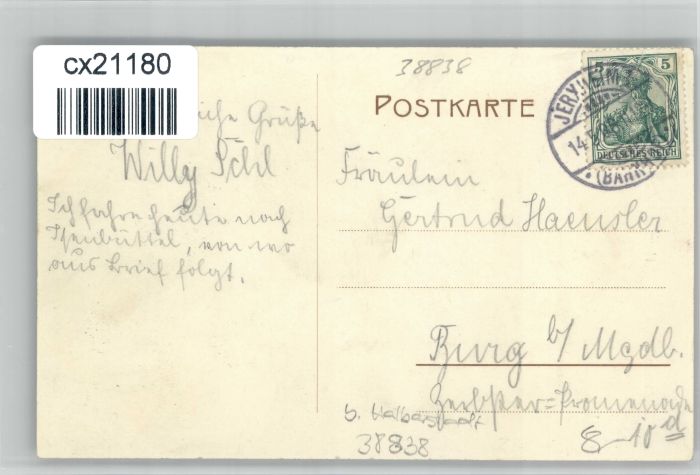 cx21180
38838
POSTKARTE
5
DEUTSCHES REICH
JERXHEIM
14
(BAHNH
Grüße
Willy
Ich fahre heute nach
Isenbüttel, von wo
aus Brief folgt.
Fräulein
Gertrud Haensler
Burg b/ Mgdb.
Zerbster=Promenade
8-10 d
b. Halberstadt
38838